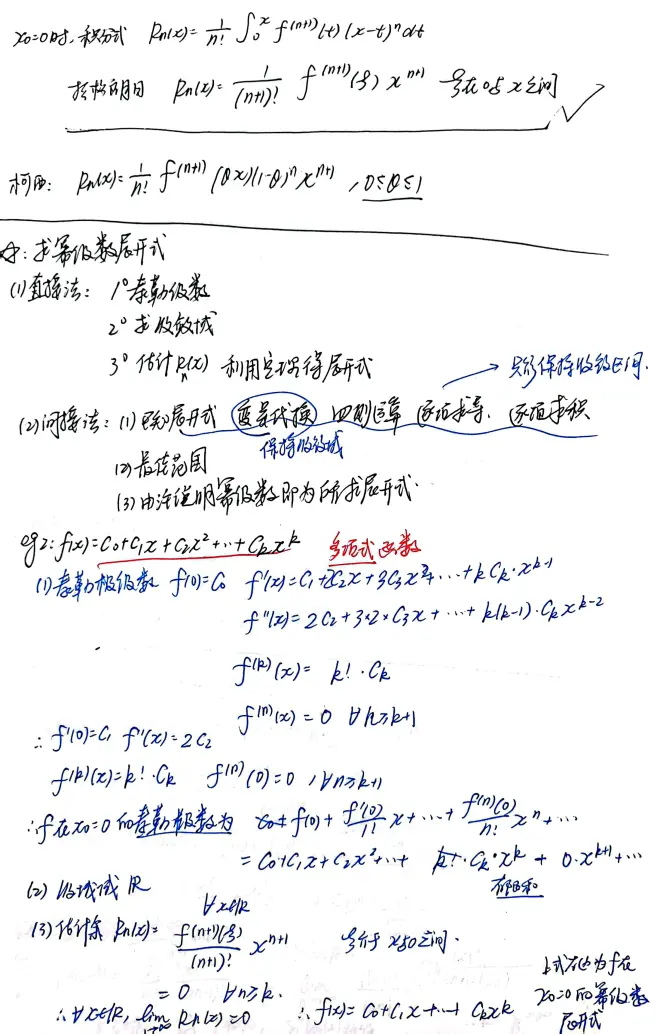 x₀=0时,积分式 Rn(x)= 1/n! ∫₀ˣ f⁽ⁿ⁺¹⁾(t)(x-t)ⁿdt
拉格朗日 Rn(x)= 1/(n+1)! f⁽ⁿ⁺¹⁾(ξ) xⁿ⁺¹ ξ在0与x之间 ✓
柯西: Rn(x)= 1/n! f⁽ⁿ⁺¹⁾(θx)(1-θ)ⁿxⁿ⁺¹ , 0≤θ≤1
求幂级数展开式
(1)直接法: 1° 泰勒级数
2° 求收敛域
3° 估计Rn(x) 利用定理得展开式
→ 只能保持收敛区间.
(2)间接法: (1) 已知展开式 变量代换 四则运算 逐项求导. 逐项求积
保持收敛域
(2)
范围
(3) 由 说明幂级数即为所求展开式.
eg2: f(x)=C₀+C₁x+C₂x²+…+Cₖxᵏ 多项式函数
(1)泰勒级数 f(0)=C₀ f'(x)=C₁+2C₂x+3C₃x²+…+kCₖ·xᵏ⁻¹
f''(x)=2C₂+3×2×C₃x+…+k(k-1)·Cₖxᵏ⁻²
f⁽ᵏ⁾(x)= k!·Cₖ
f⁽ⁿ⁾(x)=0 ∀n≥k+1
∴ f'(0)=C₁ f''(x)=2C₂
f⁽ᵏ⁾(x)=k!·Cₖ f⁽ⁿ⁾(0)=0 ,∀n≥k+1
∴f在x₀=0的泰勒级数为 f(0)+ f'(0)/1! x+…+ f⁽ⁿ⁾(0)/n! xⁿ+…
=C₀+C₁x+C₂x²+…+ Cₖ·xᵏ + 0·xᵏ⁺¹+…
有限和
(2) 收敛域 ℝ
∀x∈ℝ
(3)估计余 Rn(x)= f⁽ⁿ⁺¹⁾(ξ)/(n+1)! xⁿ⁺¹ ξ介于x与0之间.
=0 ∀n≥k.
∴∀x∈ℝ, lim Rn(x)=0 ∴ f(x)=C₀+C₁x+…+Cₖxᵏ
上式右边为f在
x₀=0的幂级数
展开式